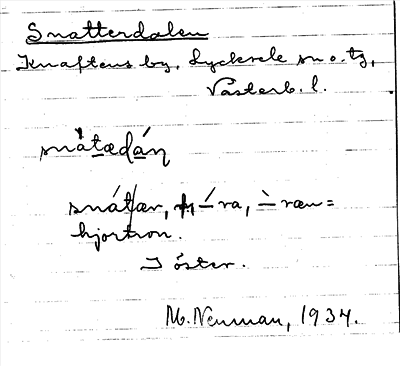 Snatterdalen
Knaftens by, Lycksele sn o. tg,
Västerb. l.
snàtædáṇ
snát/ær, ⸺́ra, ⸺̀ræn=
hjortron.
I öster.
M. Neuman, 1934.